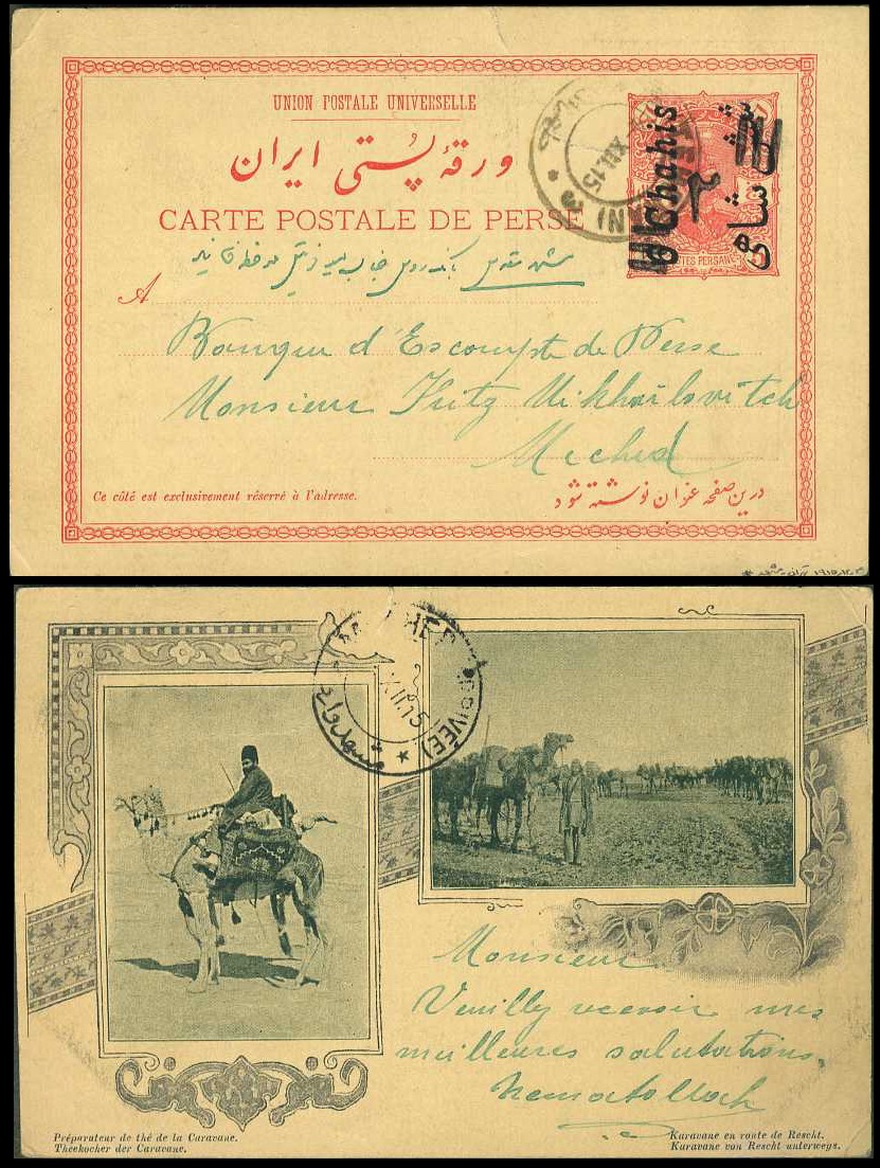 UNION POSTALE UNIVERSELLE
ورقهٔ پستی ایران
CARTE POSTALE DE PERSE
6 Chahis
شاهی
POSTES PERSANES
XII.15
A
Banque d'Escompte de Perse
Monsieur Fritz Mikhaïlovitch
Meched
Ce côté est exclusivement réservé à l'adresse.
درین صفحه عنوان نوشته شود
MECHED
XII.15
(ARRIVÉE)
Monsieur
Veuilly recevoir mes
meilleures salutations.
Nematollah
Préparateur de thé de la Caravane.
Theekocher der Caravane.
Karavane en route de Rescht.
Karavane von Rescht unterweys.